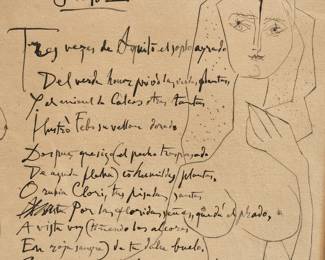 Tres vezes de Aquilō el soplo ayrado
Del verde honor privò las verdes plantas,
Y al animal de Colcos otras tantas
Ilustrò Febo su vellon dorado
Despues que sigo (el pecho traspasado
De aguda flecha) cō humildes plantas,
O rubia Clori, tus pisadas santas
Por las floridas señas, que dà el prado,
A vista voy (tiñendo los alcores
En roja sangre) de tu dulce buelo.